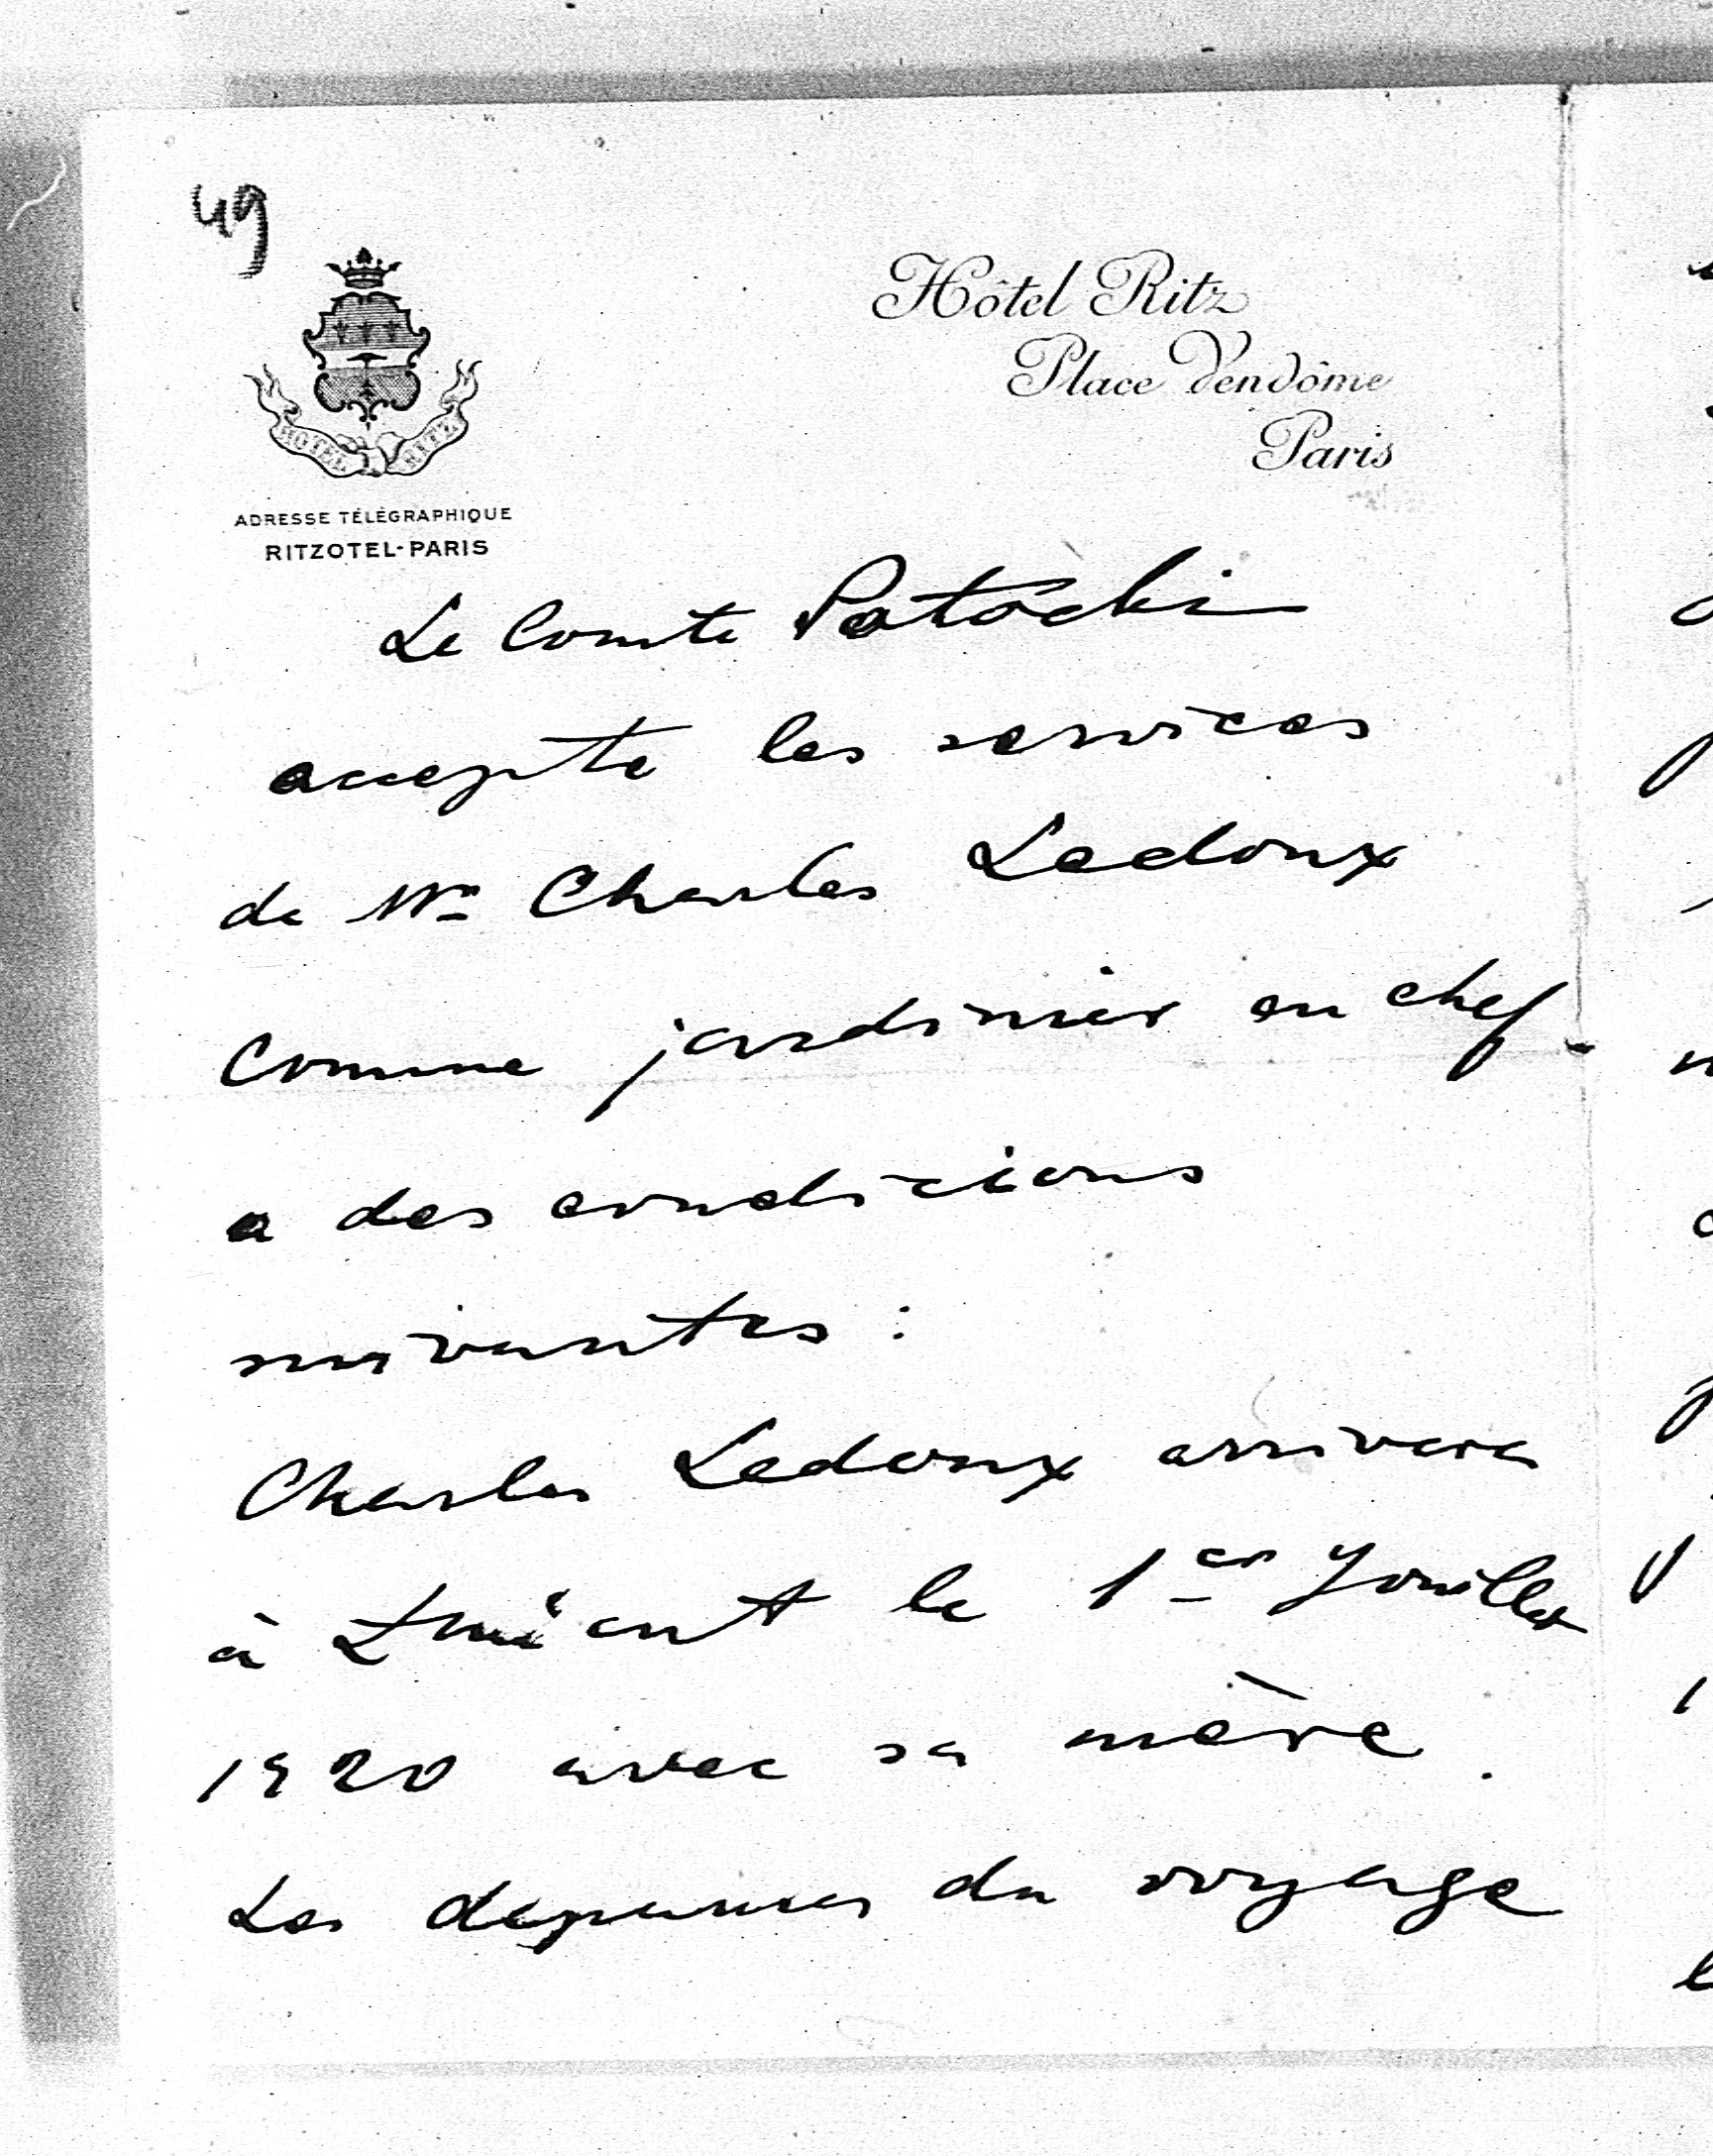 49
HOTEL RITZ
ADRESSE TÉLÉGRAPHIQUE
RITZOTEL-PARIS
Hôtel Ritz
Place Vendôme
Paris
Le Comte Potocki
accepte les services
de Mr Charles Ledoux
comme jardinier en chef
a des condicions
suivantes :
Charles Ledoux arrivera
à Łańcut le 1er Jouillet
1920 avec sa mère.
Les depenses du voyage